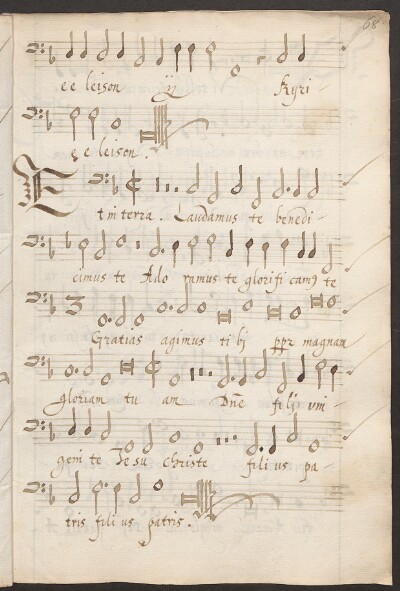 68
e e leison ij Kyri-
e e leison.
Et in terra. Laudamus te benedi-
cimus te Ado ramus te glorifi cam9 te
3
Gratias agimus ti bj ppr magnam
gloriam tu am Dñe filij uni-
geni te Jesu christe fili us pa-
tris fili us patris.